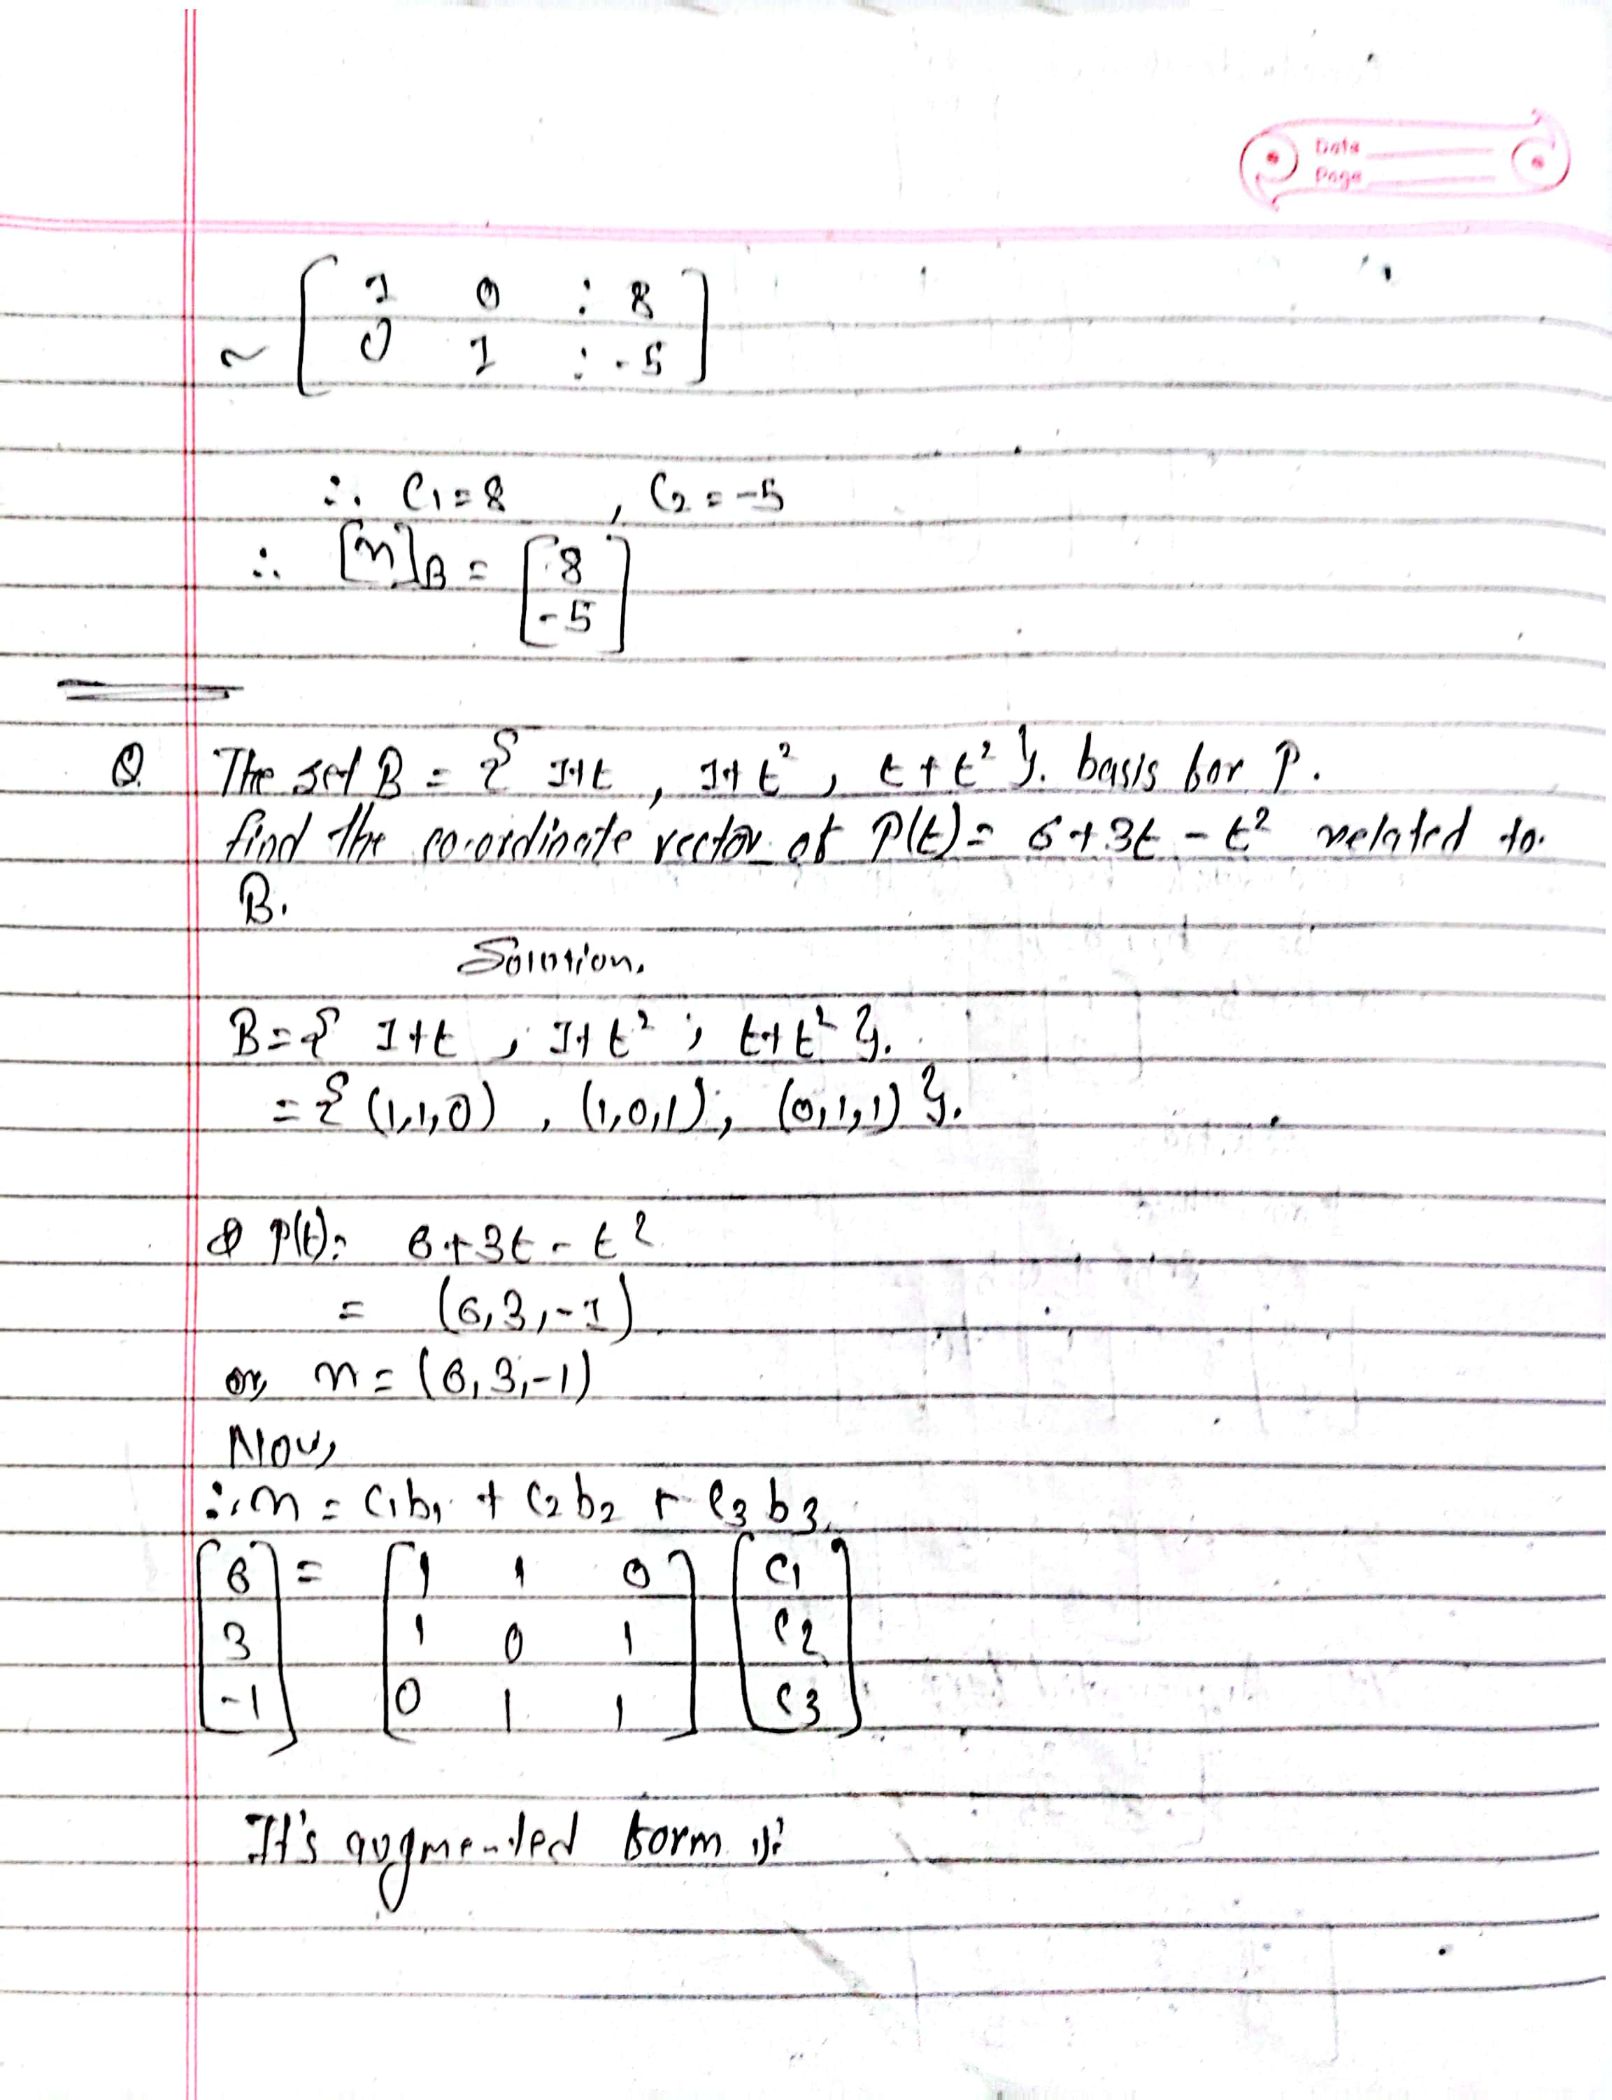 Date
Page
~ [ 1 0 : 8 ]
[ 0 1 : -5 ]
∴ C1 = 8 , C2 = -5
∴ [x]B = [ 8 ]
[ -5 ]
Q. The set B = { 1+t , 1+t² , t+t² }. basis for P.
find the co-ordinate vector of P(t) = 6+3t - t² related to.
B.
Solution.
B = { 1+t , 1+t² ; t+t² }.
= { (1,1,0) , (1,0,1) , (0,1,1) }.
& P(t) = 6+3t - t²
= (6,3,-1)
or, x = (6,3,-1)
Now,
∴ x = C1b1 + C2b2 + C3b3.
[ 6 ] = [ 1 1 0 ] [ C1 ]
[ 3 ] [ 1 0 1 ] [ C2 ]
[ -1 ] [ 0 1 1 ] [ C3 ]
It's augmented form is: